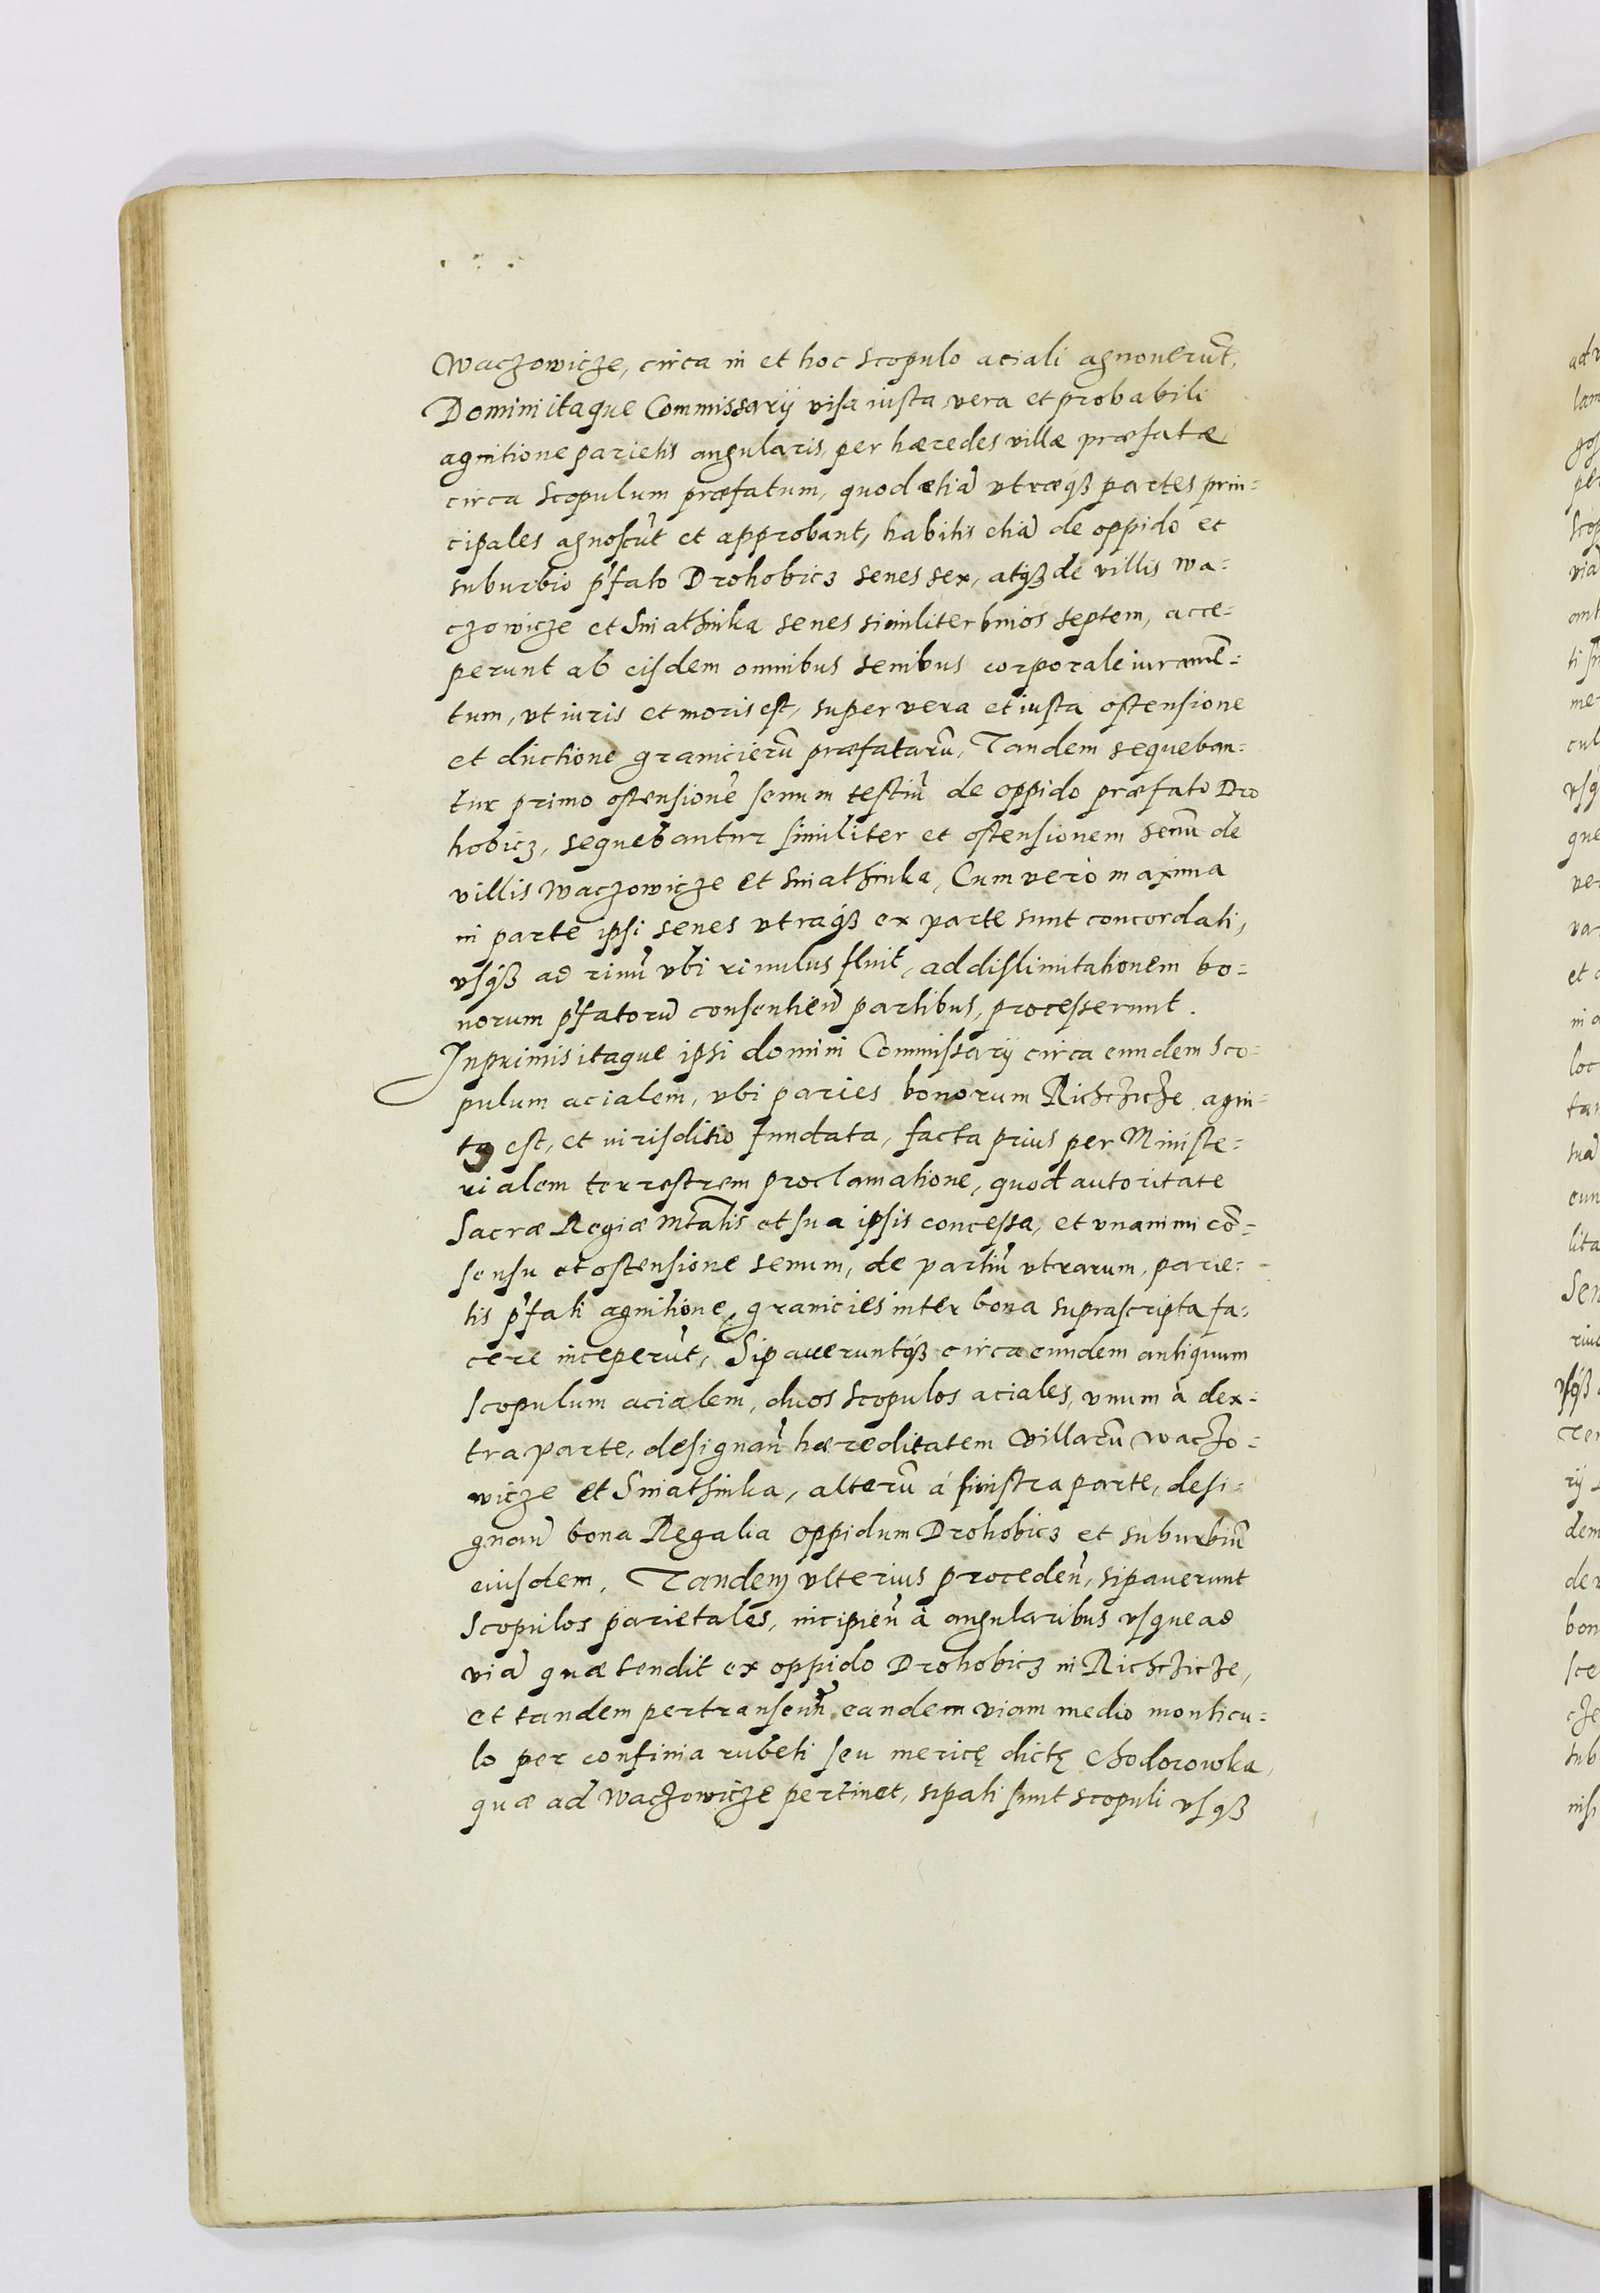 Waczowicze, circa in et hoc scopulo aciali agnoverũt,
Domini itaque Commissarij visa iusta vera et probabili
agnitione parietis angularis, per hæredes villæ præfatæ
circa scopulum præfatum, quod etiã vtræq́ꝫ partes prin-
cipales agnoscũt et approbant, habitis etiã de oppido et
suburbio p̃fato Drohobicz senes sex, atqꝫ de villis Wa-
czowicze et Sniathinka senes similiter septem, acce-
perunt ab eisdem omnibus senibus corporale iuramẽ-
tum, vt iuris et moris est, super vera et iusta ostensione
et ductione granicierũ præfatarũ, Tandem sequeban-
tur primo ostensionẽ senum testiũ de oppido præfato Dro
hobicz, sequebantur similiter et ostensionem senũ de
villis Waczowicze et Sniathinka, Cum verò maxima
in parte ipsi senes vtraq́ꝫ ex parte sunt concordati,
vsqꝫ ad riuũ vbi riuulus fluit, ad dislimitationem bo-
norum p̃fatorũ consentieñ partibus, processerunt.
Inprimis itaque ipsi domini Commissarij circa eundem sco-
pulum acialem, vbi paries bonorum Richczicze agni-
tꝯ est, et iurisditio fundata, facta prius per Ministe-
rialem terrestrem proclamatione, quod autoritate
Sacræ Regiæ Mtatis et sua ipsis concessa, et vnanimi cõ-
sensu et ostensione senum, de partiũ vtrarum, parie-
tis p̃fati agnitione, granicies inter bona suprascripta fa-
cere inceperũt, Sipaueruntq́ꝫ circa eundem antiquum
scopulum acialem, duos scopulos aciales, vnum à dex-
tra parte, designañ hæreditatem villarũ Waczo-
wicze et Sniathinka, alterũ á sinistra parte, desi-
gnañ bona Regalia oppidum Drohobicz et suburbiũ
eiusdem, Tandem vlterius procedeñ, sipauerunt
scopulos parietales, incipieñ à angularibus vsque ad
viã quæ tendit ex oppido Drohobicz in Richczicze,
et tandem pertranseuñ eandem viam medio monticu-
lo per confinia rubeti seu mericę dictę Chodorowka,
quæ ad Waczowicze pertinet, sipati sunt scopuli vsqꝫ